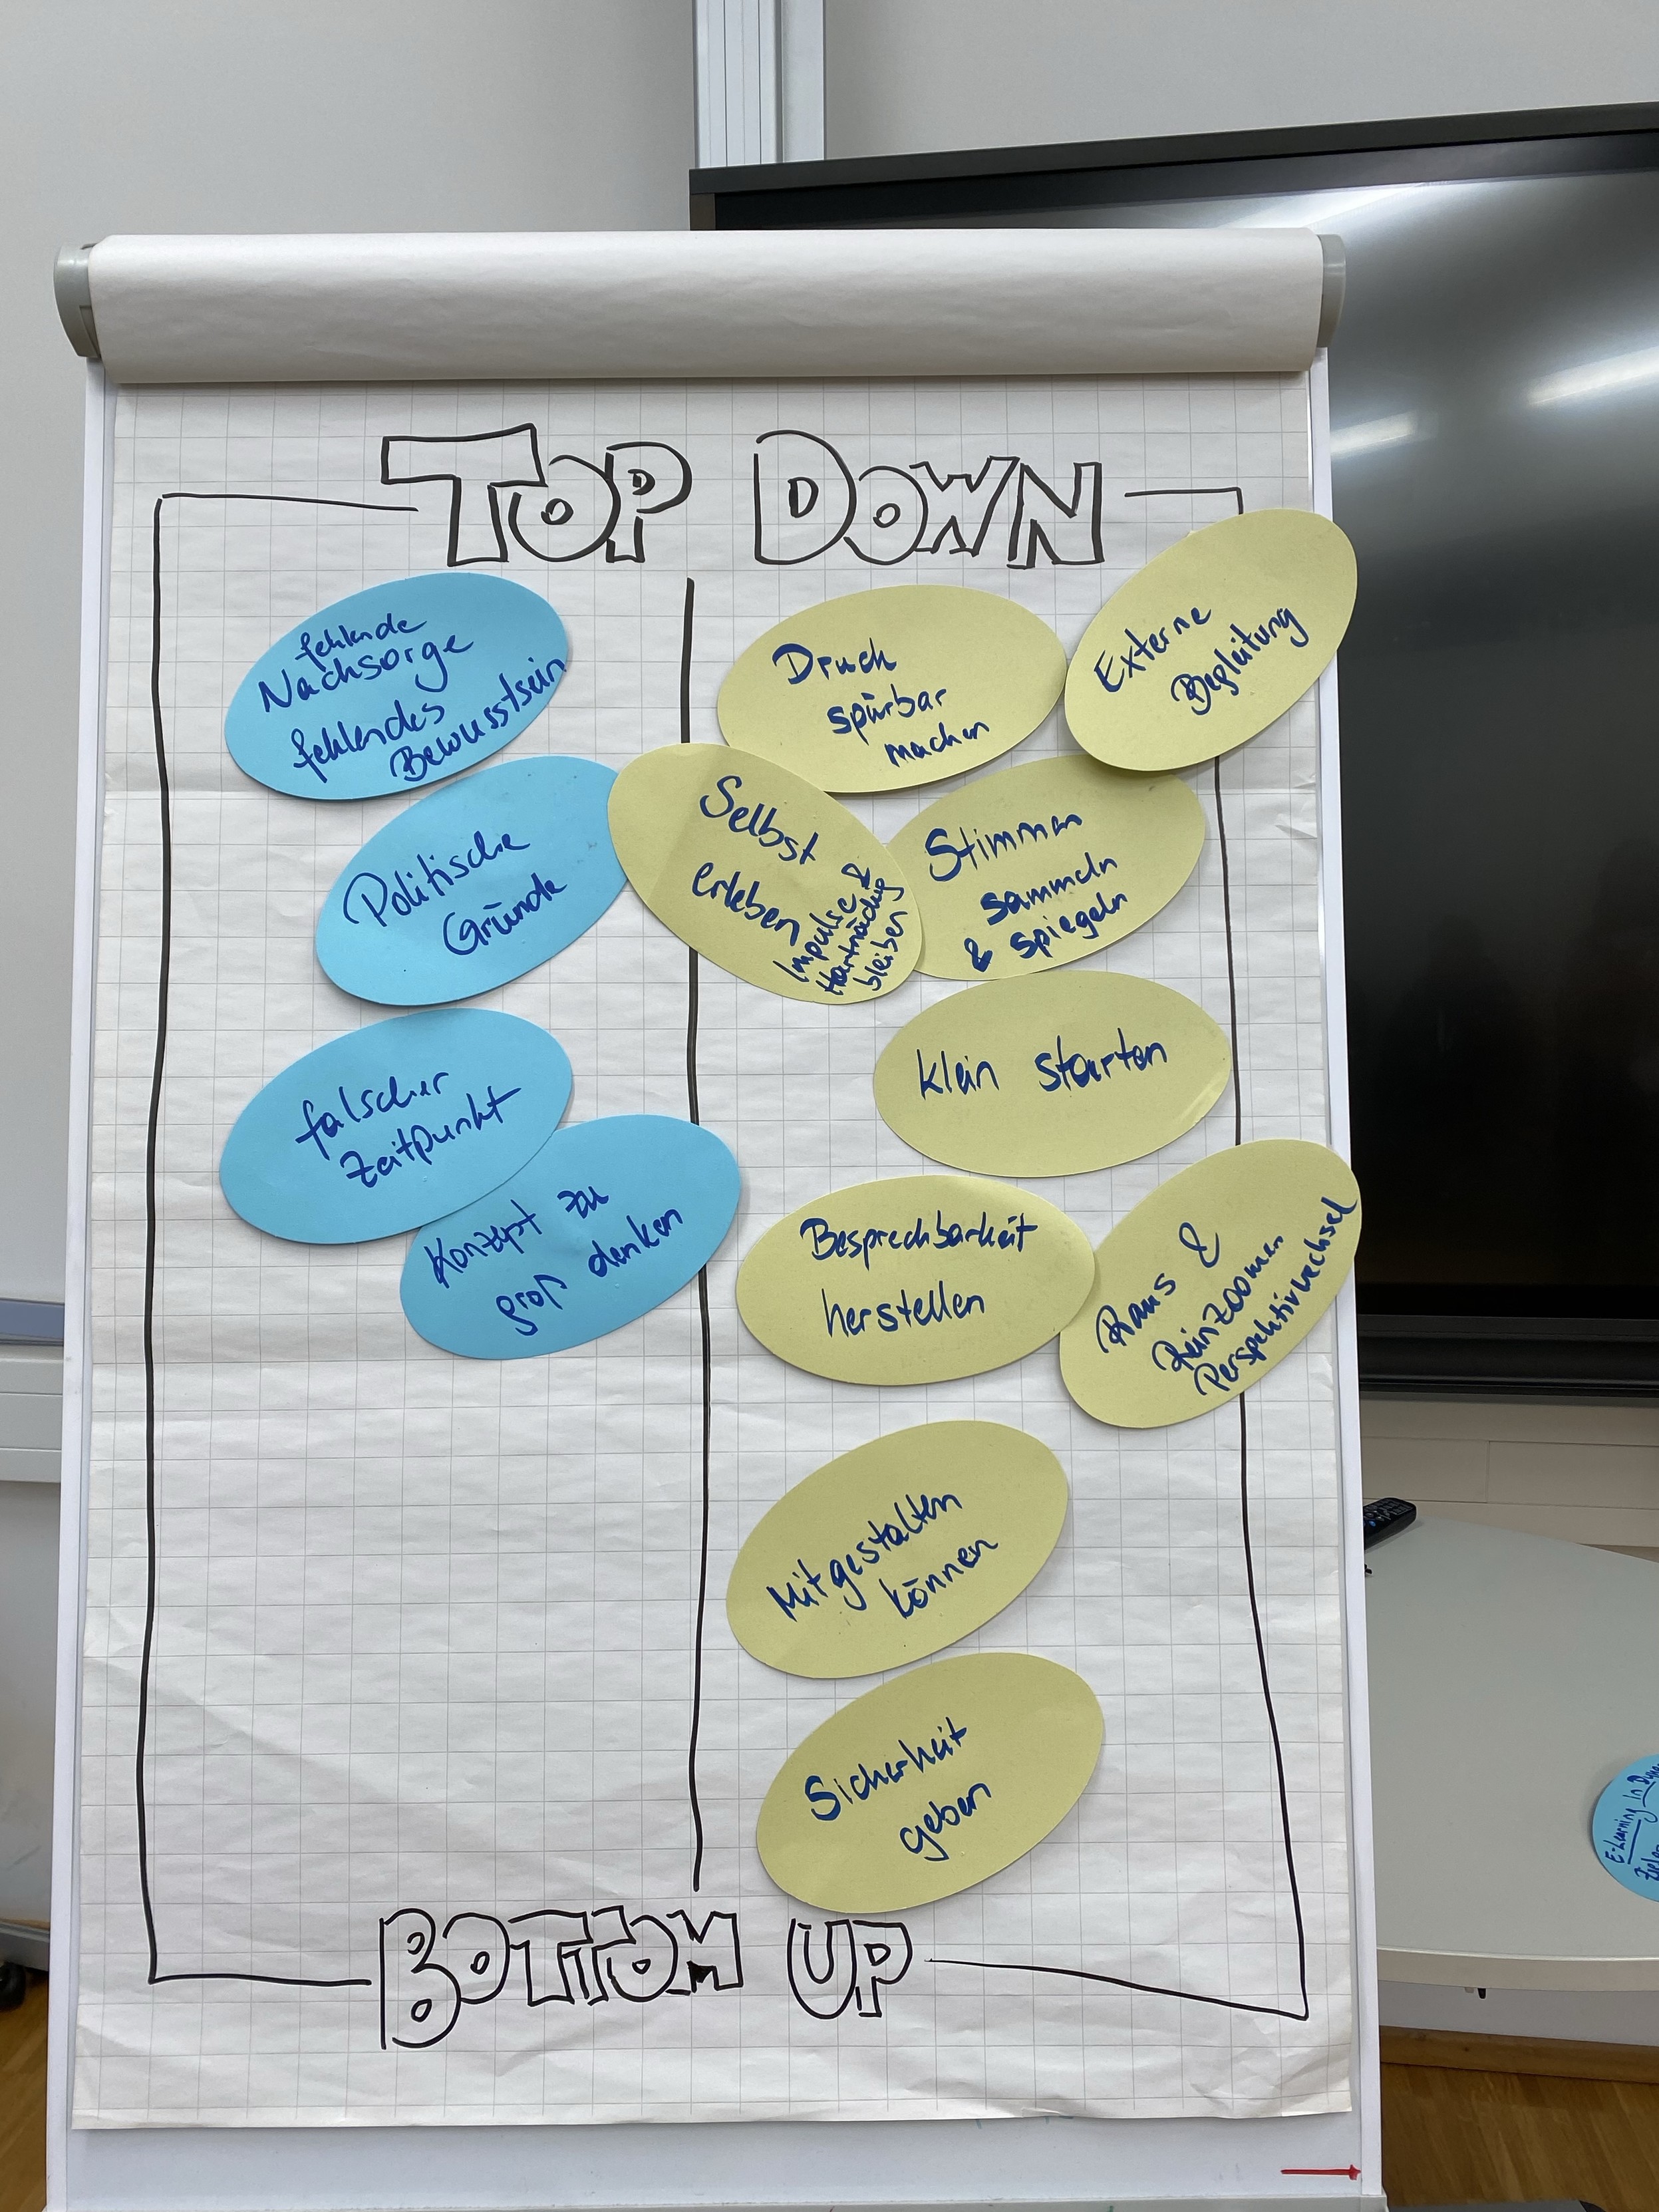 TOP DOWN
fehlende
Nachsorge
fehlendes
Bewusstsein
Politische
Gründe
falscher
Zeitpunkt
Konzept zu
groß denken
Druck
spürbar
machen
Externe
Begleitung
Selbst
erleben
Impulse &
Hartnäckig
bleiben
Stimmen
sammeln
& spiegeln
klein starten
Besprechbarkeit
herstellen
Raus &
Reinzoomen
Perspektivwechsel
Mitgestalten
können
Sicherheit
geben
BOTTOM UP
E-Learning in